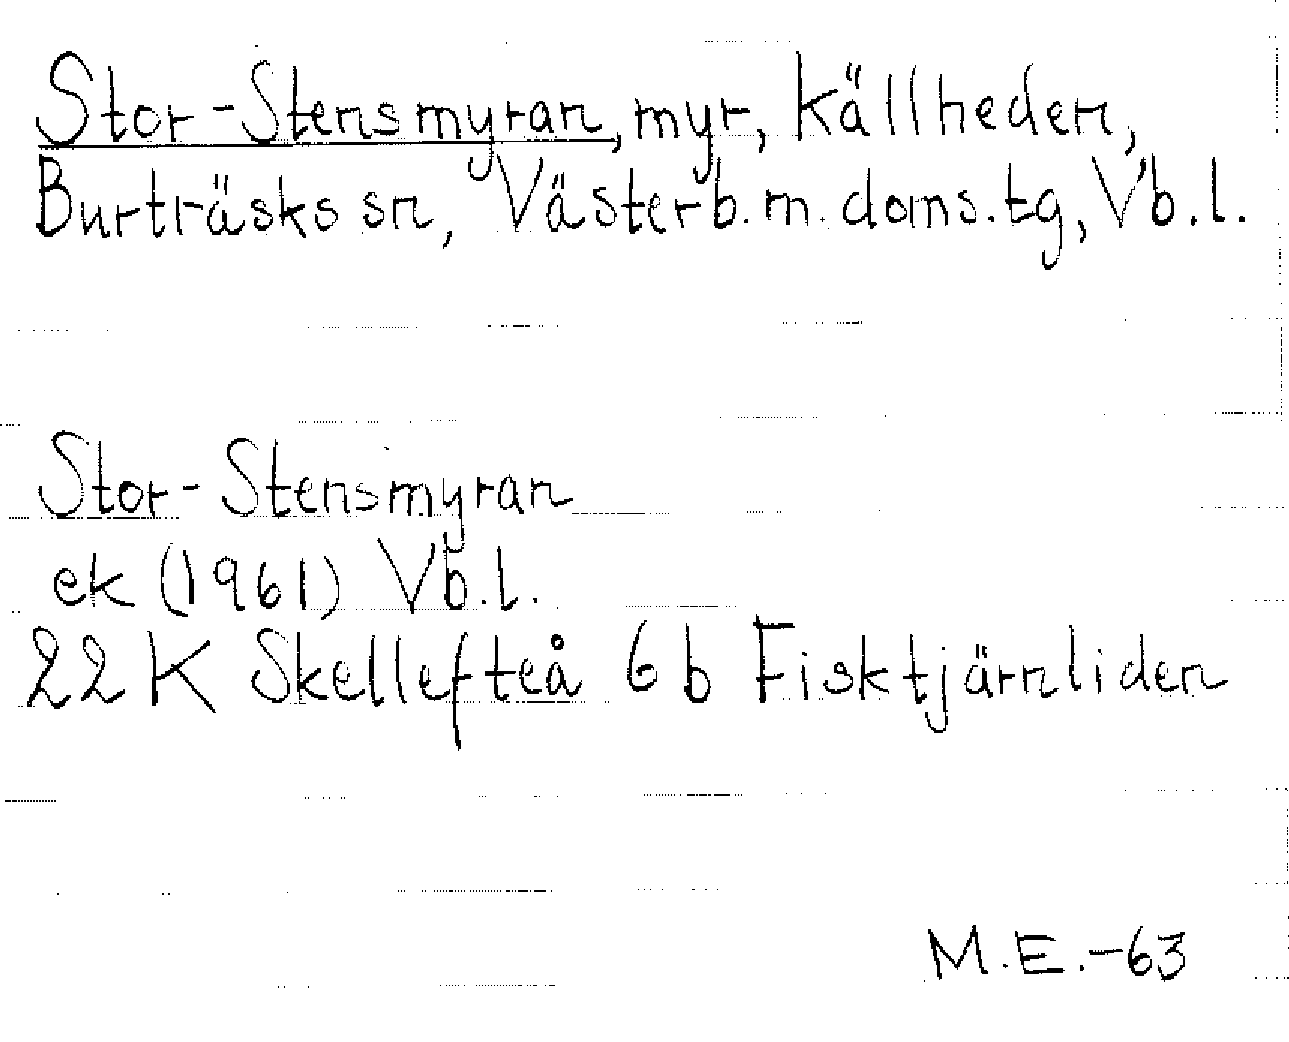 Stor-Stensmyran, myr, Källheden,
Burträsks sn, Västerb.m.doms.tg, Vb.l.
Stor-Stensmyran
ek (1961) Vb.l.
22 K Skellefteå 6 b Fisktjärnliden
M.E.-63